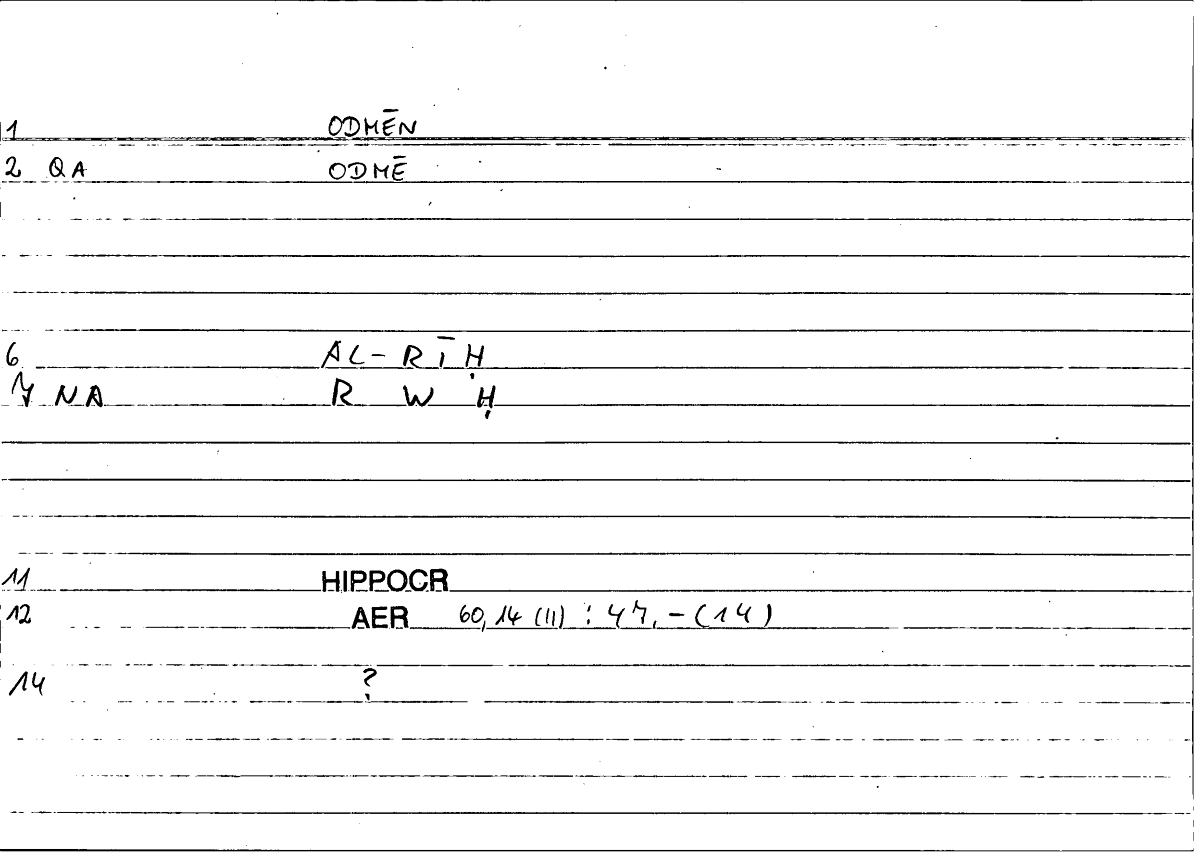 1 ODMĒN
2 QA ODMĒ
6 AL-RĪḤ
7 NA R W Ḥ
11 HIPPOCR
12 AER 60,14 (11) : 47,-(14)
14 ?